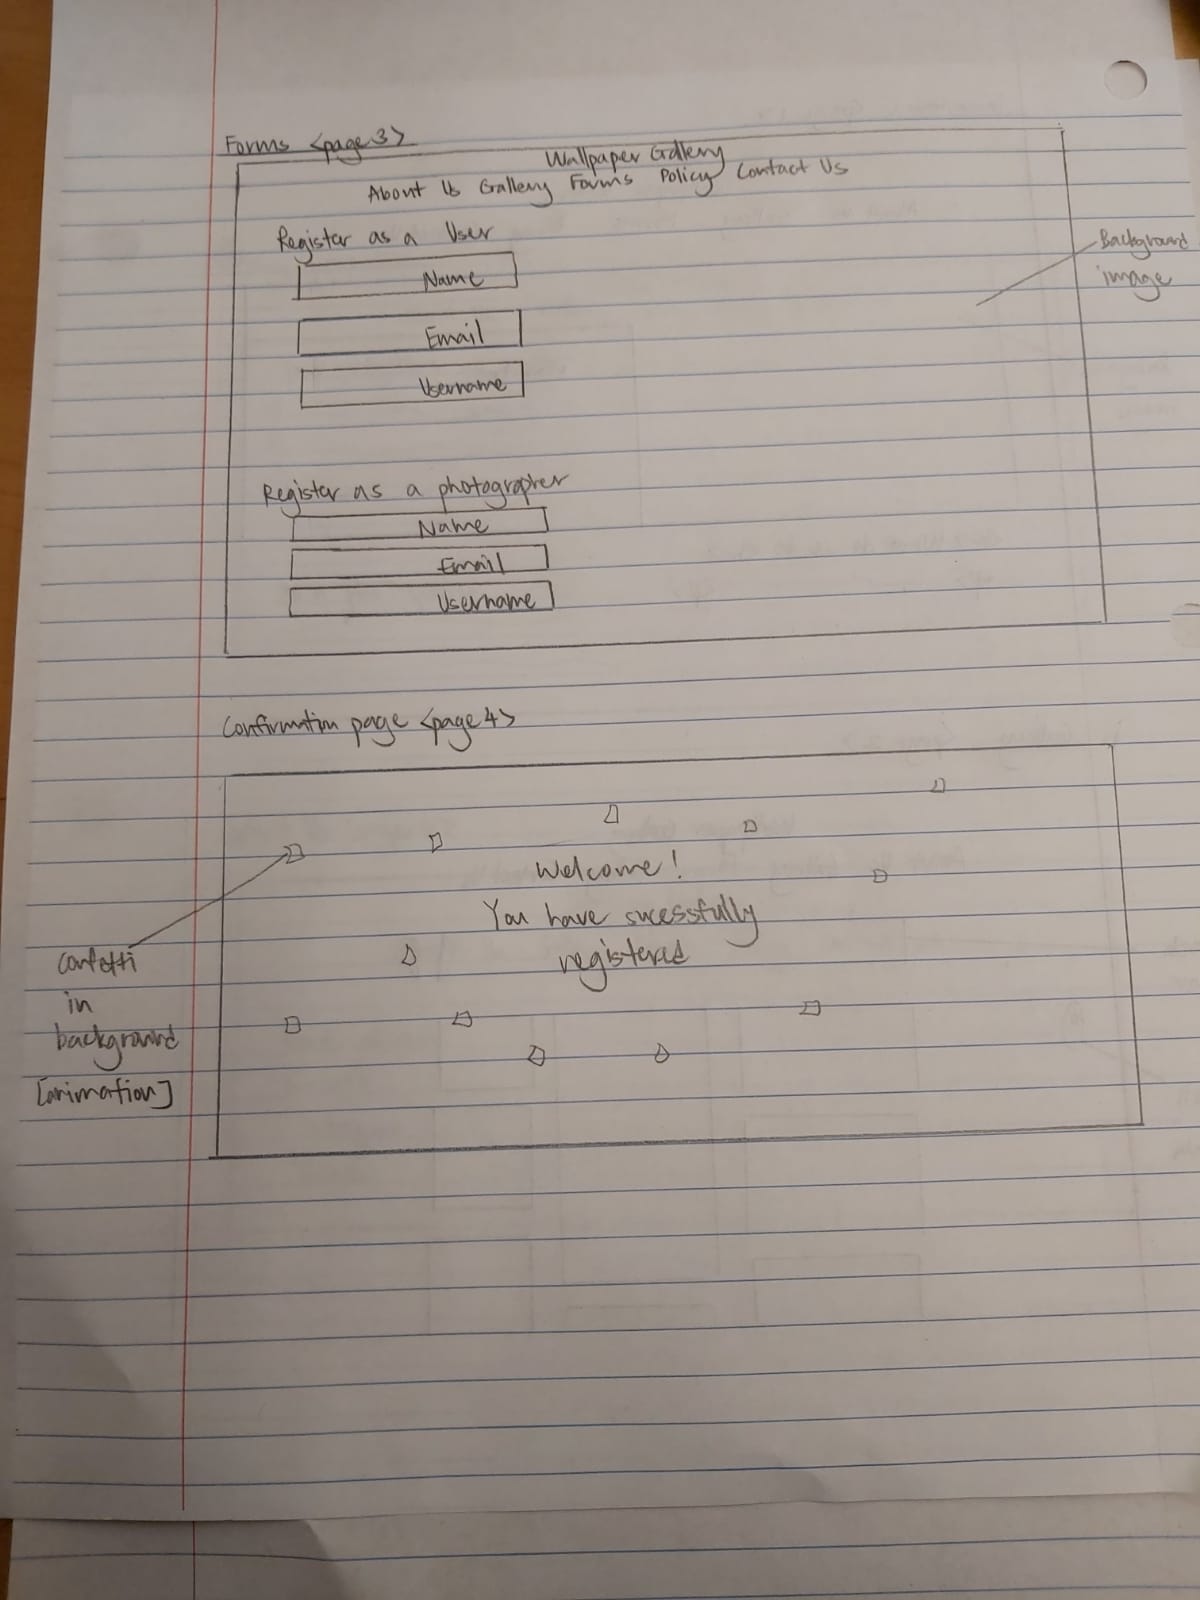 Forms <page 3>
Wallpaper Gallery
About Us Gallery Forms Policy Contact Us
Register as a User
Name
Email
Username
Background
image
Register as a photographer
Name
Email
Username
Confirmation page <page 4>
Welcome!
You have sucessfully
registered
Confetti
in
background
[animation]